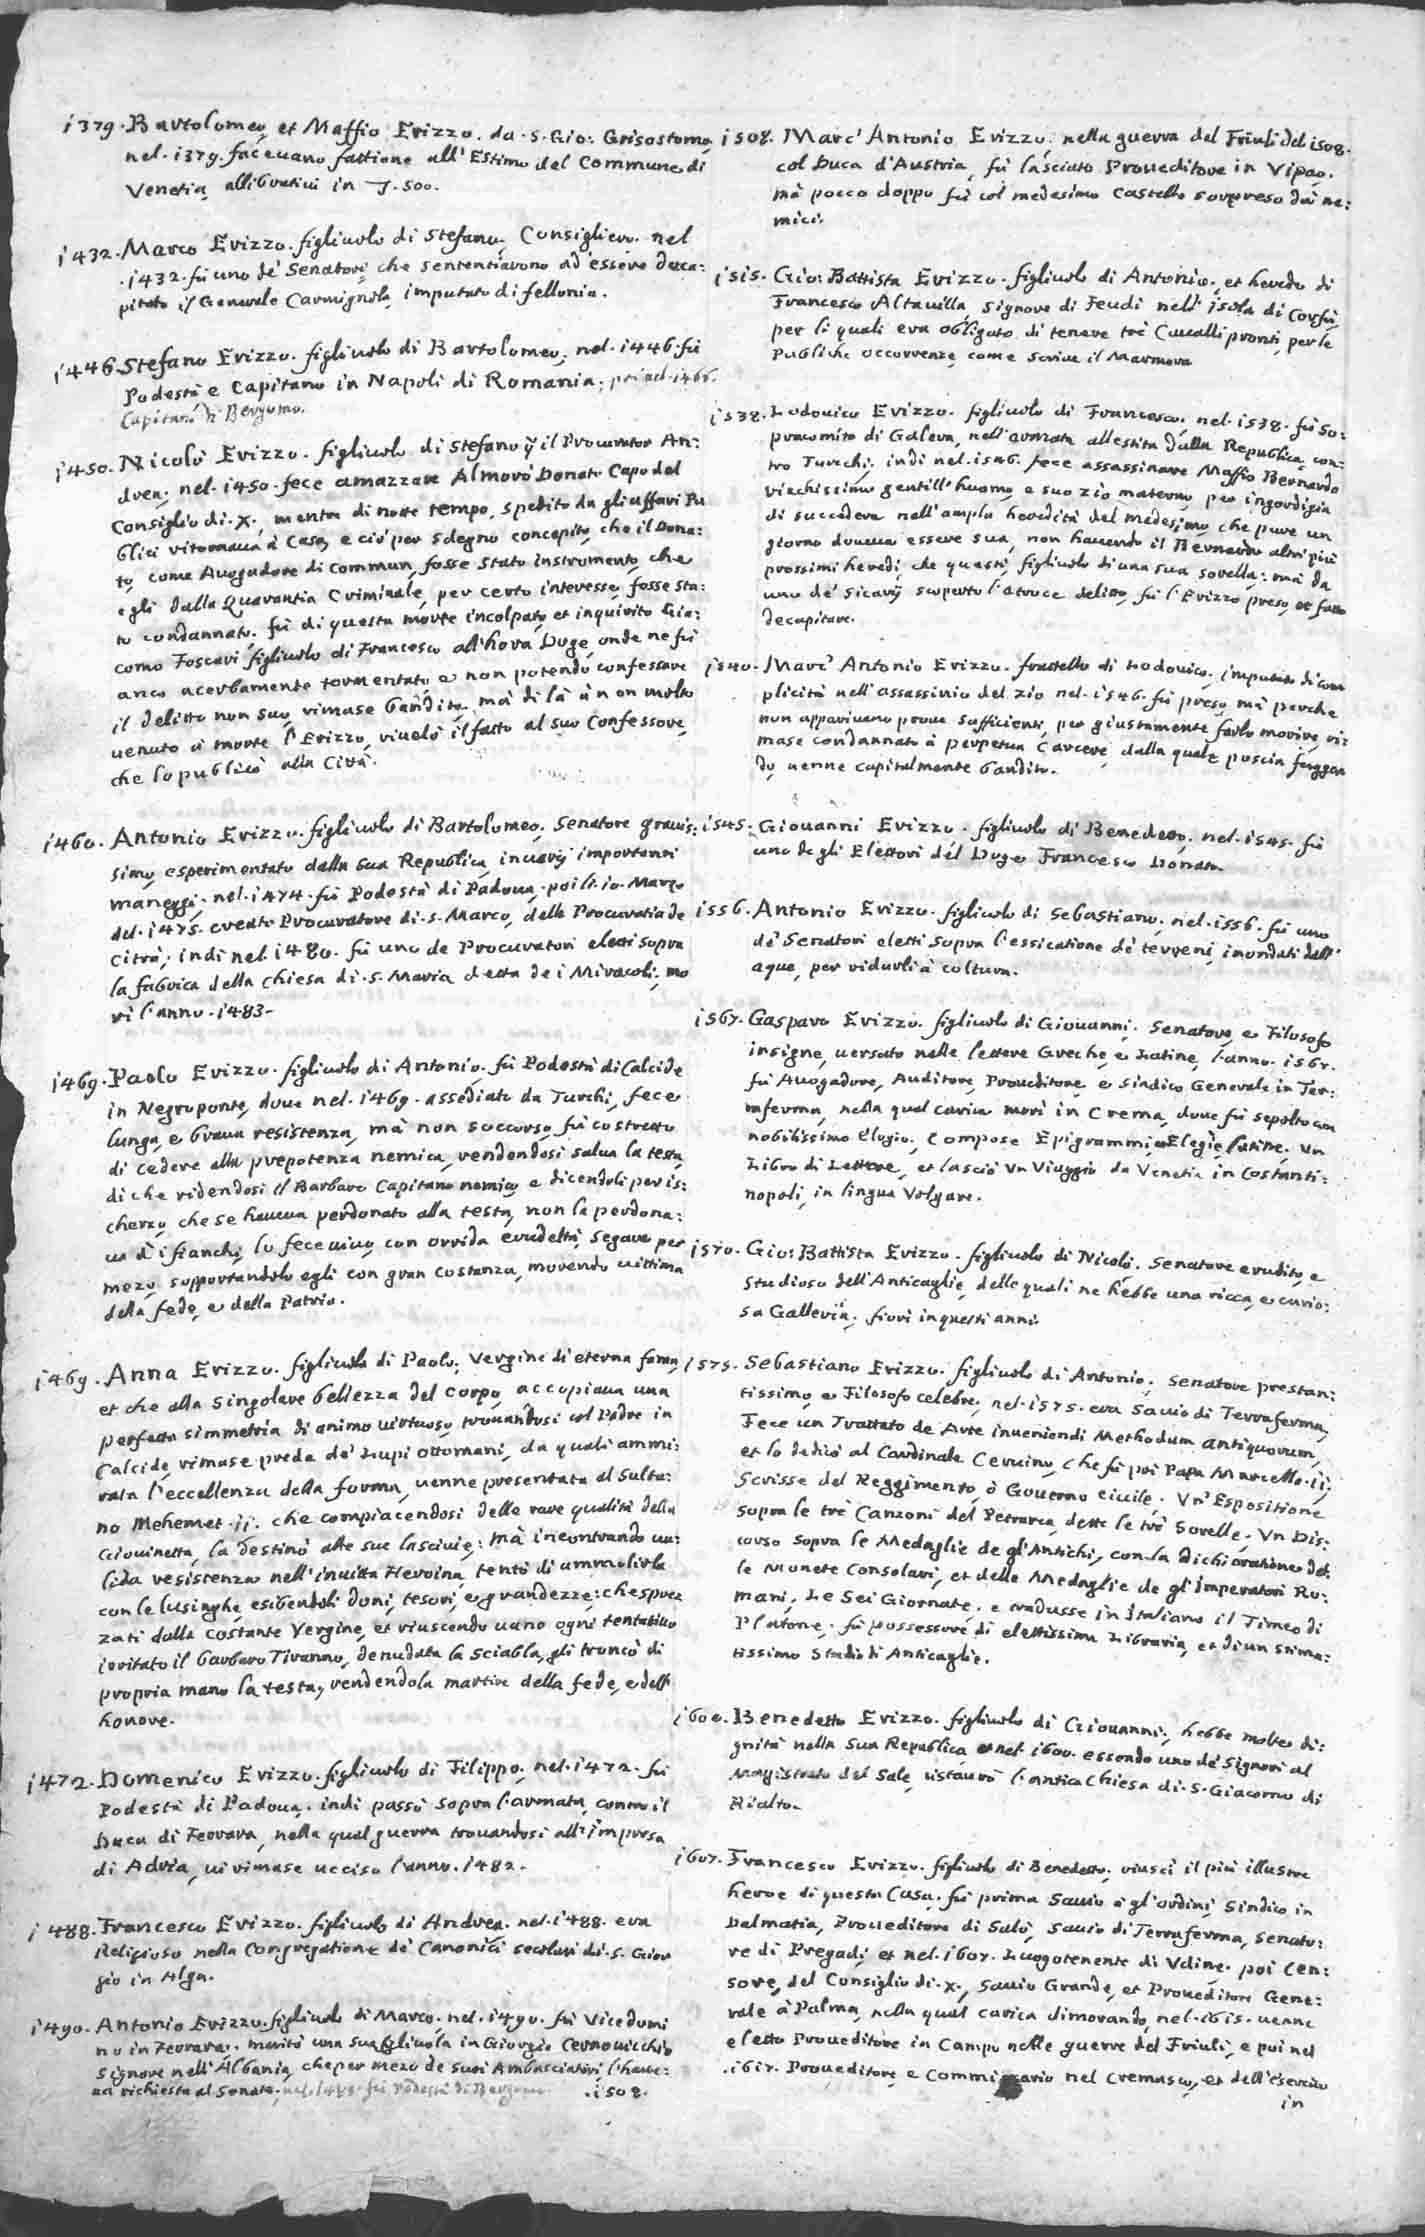 i379. Bartolomeo, et Maffio Erizzo. da. s. Gio: Grisostomo,
nel. i379. faceuano fattione all'Estimo del Commune di
Venetia, allibratiui in J. 500.
i432. Marco Erizzo. figliuolo di Stefano, Consigliero. nel
.i432. fù uno de' Senatori, che sententiarono ad'essere deca:
pitato il Generale Carmignola, imputato di fellonia.
i446. Stefano Erizzo. figliuolo di Bartolomeo, nel. i446. fù
Podestà e Capitano in Napoli di Romania;
Capitano di Bergomo.
i450. Nicolò Erizzo. figliuolo di Stefano q il Procurator An:
drea; nel. i450. fece amazzare Almorò Donato Capo del
Consiglio di. X., mentre di notte tempo, spedito da gli affari Pu
blici ritornaua à Casa, e ciò per sdegno concepito, che il Dona:
to, come Auogadore di Commun, fosse stato instrumento, che
egli dalla Quarantia Criminale, per certo interesse, fosse sta:
to condannato. fù di questa morte incolpato, et inquirito Gia:
como Foscari figliuolo di Francesco all'hora Doge, onde ne fù
anco acerbamente tormentato e non potendo confessare
il delitto non suo, rimase bandito, mà di là à non molto
uenuto à morte l'Erizzo, riuelò il fatto al suo Confessore,
che lo publicò alla Città.
i460. Antonio Erizzo. figliuolo di Bartolomeo. Senatore grauis:
simo, esperimentato dalla sua Republica, in uarij importanti
maneggi. nel. i474. fù Podestà di Padoua. poi li. io. Marzo
del. i475. creato Procuratore di. s. Marco, delle Procuratia de
Citrà; indi nel. i480. fù uno de Procuratori eletti sopra
la fabrica della Chiesa di. s. Maria detta de i Miracoli; mo
rì l'anno. i483.
i469. Paolo Erizzo. figliuolo di Antonio. fù Podestà di Calcide
in Negroponte, doue nel. i469. assediato da Turchi, fece
lunga, e braua resistenza, mà non soccorso, fù costretto
di cedere alla prepotenza nemica, rendendosi salua la testa,
di che ridendosi il Barbaro Capitano nemico, e dicendoli per is:
cherzo, che se haueua perdonato alla testa, non la perdona:
ua à i fianchi, lo fece uiuo, con orrida crudeltà, segare per
mezo, sopportandolo egli con gran costanza, morendo uittima
della fede, e della Patria.
i469. Anna Erizzo. figliuola di Paolo. Vergine di eterna fama,
et che alla singolare bellezza del corpo, accopiaua una
perfetta simmetria di animo uirtuoso, trouandosi col Padre in
Calcide, rimase preda de' Lupi ottomani, da quali ammi:
rata l'eccellenza della forma, uenne presentata al Sulta:
no Mehemet. ij. che compiacendosi delle rare qualità della
Giouinetta, la destinò alle sue lasciuie; mà incontrando ua:
lida resistenza nell'inuitta Heroina, tentò di ammolirla
con le lusinghe, esibendoli doni, tesori, e grandezze: che sprez
zati dalla costante Vergine, et riuscendo uano ogni tentatiuo
irritato il barbaro Tiranno, denudata la Sciabla, gli troncò di
propria mano la testa, rendendola martire della fede, e dell'
honore.
i472. Domenico Erizzo. figliuolo di Filippo. nel. i472. fù
Podestà di Padoua. indi passò sopra l'armata, contro il
Duca di Ferrara, nella qual guerra trouandosi all'impresa
di Adria, ui rimase ucciso l'anno. i482.
i488. Francesco Erizzo. figliuolo di Andrea. nel. i488. era
Religioso nella Congregatione de' Canonici secolari di. s. Gior
gio in Alga.
i490. Antonio Erizzo. figliuolo di Marco. nel. i490. fù Vicedomi
no in Ferrara. maritò una sua figliuola in Giorgio Cernouicchio
Signore nell'Albania, che per mezo de suoi Ambasciatori, l'haue:
ua richiesta al Senato. fù Podestà di Bergomo.
.i508.
i508. Marc'Antonio Erizzo. nella guerra del Friuli del i508.
col Duca d'Austria, fù lasciato Proueditore in Vipao.
mà pocco doppo fù col medesimo Castello sorpreso dai ne:
mici.
i5i5. Gio: Battista Erizzo. figliuolo di Antonio. et herede di
Francesco Altauilla, Signore di Feudi nell'isola di Corfù,
per li quali era obligato di tenere trè Caualli pronti, per le
Publiche occorrenze, come scriue il Marmora
i538. Lodouico Erizzo. figliuolo di Francesco. nel. i538. fù So:
pracomito di Galera, nell'armata allestita dalla Republica, con:
tro Turchi; indi nel. i546. fece assassinare Maffio Bernardo
richissimo gentil'huomo, e suo zio materno, per ingordigia
di succedere nell'ampla heredità del medesimo, che pure un
giorno doueua essere sua, non hauendo il Bernardo altri più
prossimi heredi, che questi, figliuolo di una sua sorella: mà da
uno de' sicarij scoperto l'atroce delitto, fù l'Erizzo preso, et fatto
decapitare.
i540. Marc'Antonio Erizzo. fratello di Lodouico, imputato di com
plicità nell'assassinio del zio nel. i546. fù preso, mà perche
non appariuano proue sufficienti, per giustamente farlo morire, ri:
mase condannato à perpetua Carcere, dalla quale poscia fuggen
do, uenne capitalmente bandito.
i545. Giouanni Erizzo. figliuolo di Benedetto. nel. i545. fù
uno degli Elettori del Doge Francesco Donato.
i556. Antonio Erizzo. figliuolo di Sebastiano. nel. i556. fù uno
de' Senatori eletti sopra l'essicatione de' terreni, inondati dall'
aque, per ridurli à coltura.
i567. Gasparo Erizzo. figliuolo di Giouanni. Senatore, e Filosofo
insigne, uersato nelle lettere Greche, e Latine, l'anno. i567.
fù Auogadore, Auditore, Proueditore, e Sindico Generale in Ter:
raferma, nella qual carica morì in Crema, doue fù sepolto con
nobilissimo Elogio. Compose Epigrammi, e Elegie latine. Un
Libro di Lettere, et lasciò Un Viaggio da Venetia in Costanti:
nopoli, in lingua Volgare.
i570. Gio: Battista Erizzo. figliuolo di Nicolò. Senatore erudito, e
Studioso dell'Anticaglie, delle quali ne hebbe una ricca, e curio:
sa Galleria. fiorì in questi anni.
i575. Sebastiano Erizzo. figliuolo di Antonio. Senatore prestan:
tissimo, e Filosofo celebre, nel. i575. era Sauio di Terraferma,
Fece un Trattato de Arte inueniendi Methodum antiquorum,
et lo dedicò al Cardinale Ceruino, che fù poi Papa Marcello. ij;
Scrisse del Reggimento, ò Gouerno ciuile. Un'Espositione
sopra le trè Canzoni del Petrarca, dette le trè Sorelle. Un Dis:
corso sopra le Medaglie de gl'Antichi, con la dichiaratione del:
le Monete Consolari, et delle Medaglie de gl'Imperatori Ro:
mani; Le Sei Giornate, e tradusse in Italiano il Timeo di
Platone. fù possessore di elettissima Libraria, et di un stima:
tissimo Studio di Anticaglie.
i600. Benedetto Erizzo. figliuolo di Giouanni; hebbe molte di:
gnità nella sua Republica, et nel. i600. essendo uno de' Signori al
Magistrato del Sale, ristaurò l'antica Chiesa di. s. Giacomo di
Rialto.
i607. Francesco Erizzo. figliuolo di Benedetto. riuscì il più illustre
heroe di questa Casa. fù prima Sauio à gl'ordini, Sindico in
Dalmatia, Proueditore di Salò, Sauio di Terraferma, Senato:
re di Pregadi, et nel. i607. Luogotenente di Vdine. poi Cen:
sore, del Consiglio di. X., Sauio Grande, et Proueditore Gene:
rale à Palma, nella qual carica dimorando, nel. i6i5. uenne
eletto Proueditore in Campo nelle guerre del Friuli, e poi nel
.i617. Proueditore, e Commissario nel Cremasco, et dell'esercito
in